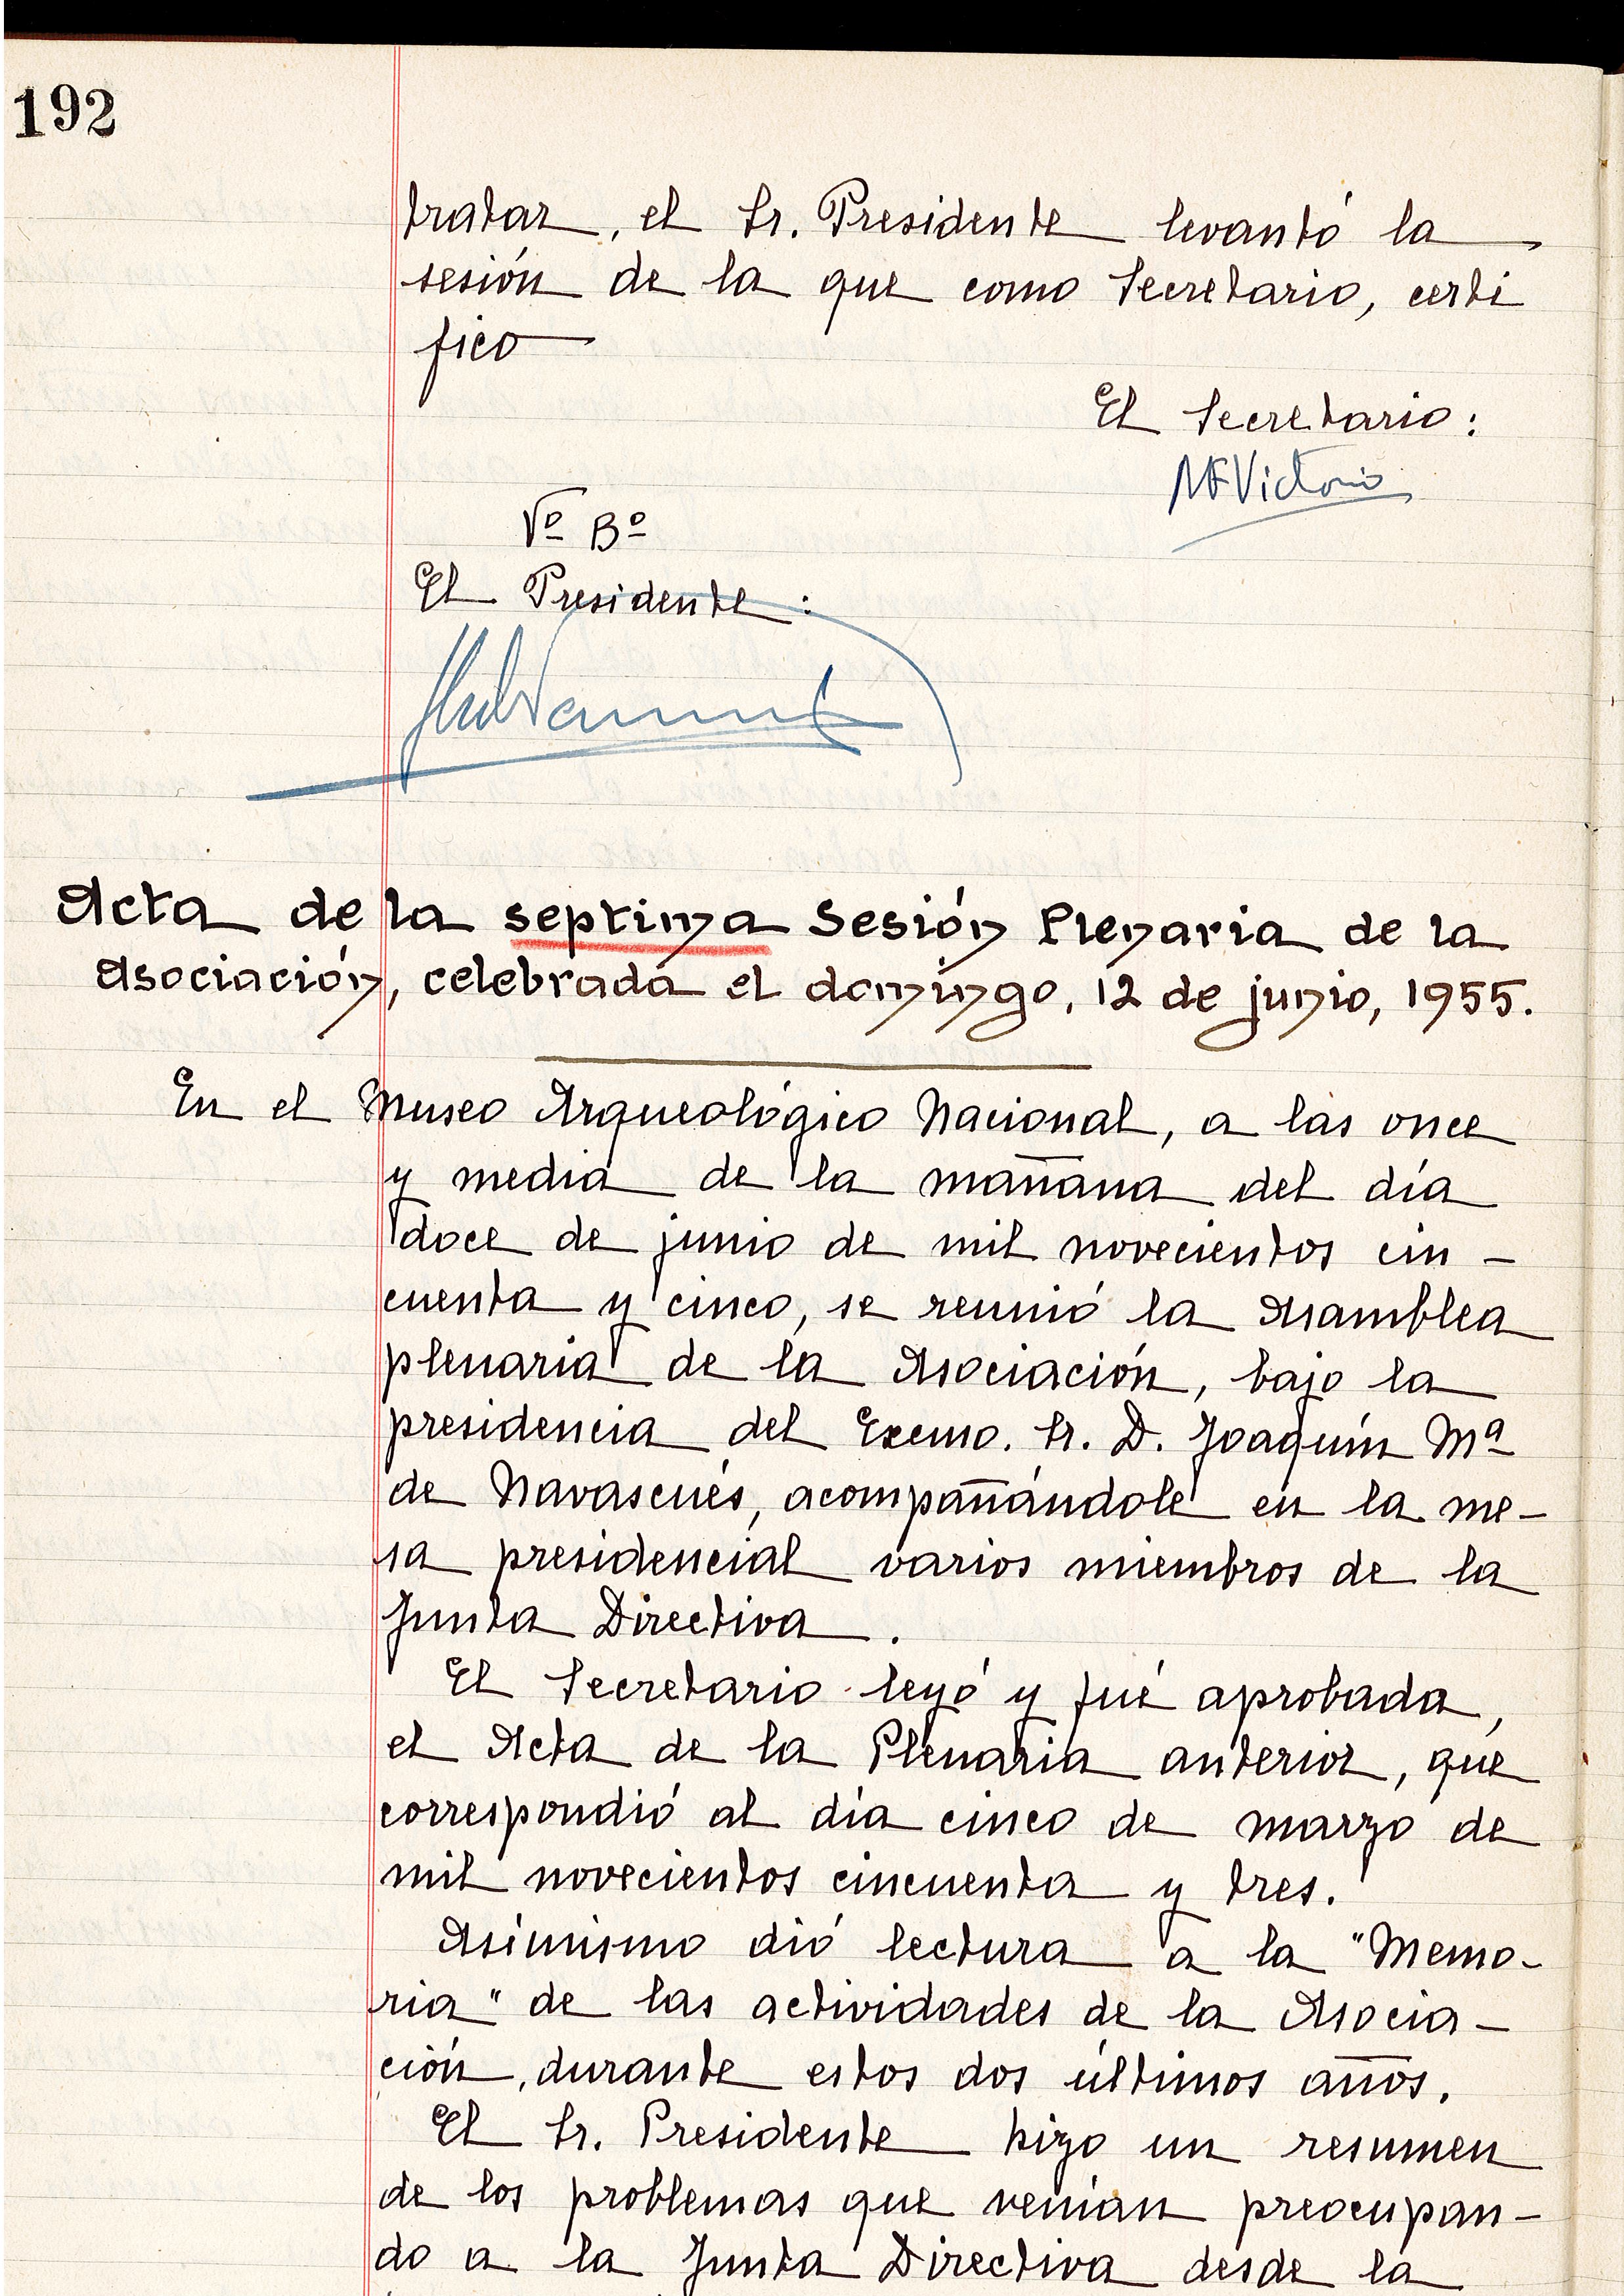 192
tratar, el Sr. Presidente levantó la
sesión de la que como Secretario, certi
fico
El Secretario:
Vº Bº
El Presidente:
Acta de la septima Sesión Plenaria de la
Asociación, celebrada el domingo, 12 de junio, 1955.
En el Museo Arqueológico Nacional, a las once
y media de la mañana del día
doce de junio de mil novecientos cin-
cuenta y cinco, se reunió la Asamblea
plenaria de la Asociación, bajo la
presidencia del Excmo. Sr. D. Joaquín Mª
de Navascués, acompañándole en la me-
sa presidencial varios miembros de la
Junta Directiva.
El Secretario leyó y fué aprobada,
el Acta de la Plenaria anterior, que
correspondió al día cinco de marzo de
mil novecientos cincuenta y tres.
Asímismo dió lectura a la "Memo-
ria" de las actividades de la Asocia-
ción, durante estos dos últimos años.
El Sr. Presidente hizo un resumen
de los problemas que venían preocupan-
do a la Junta Directiva desde la